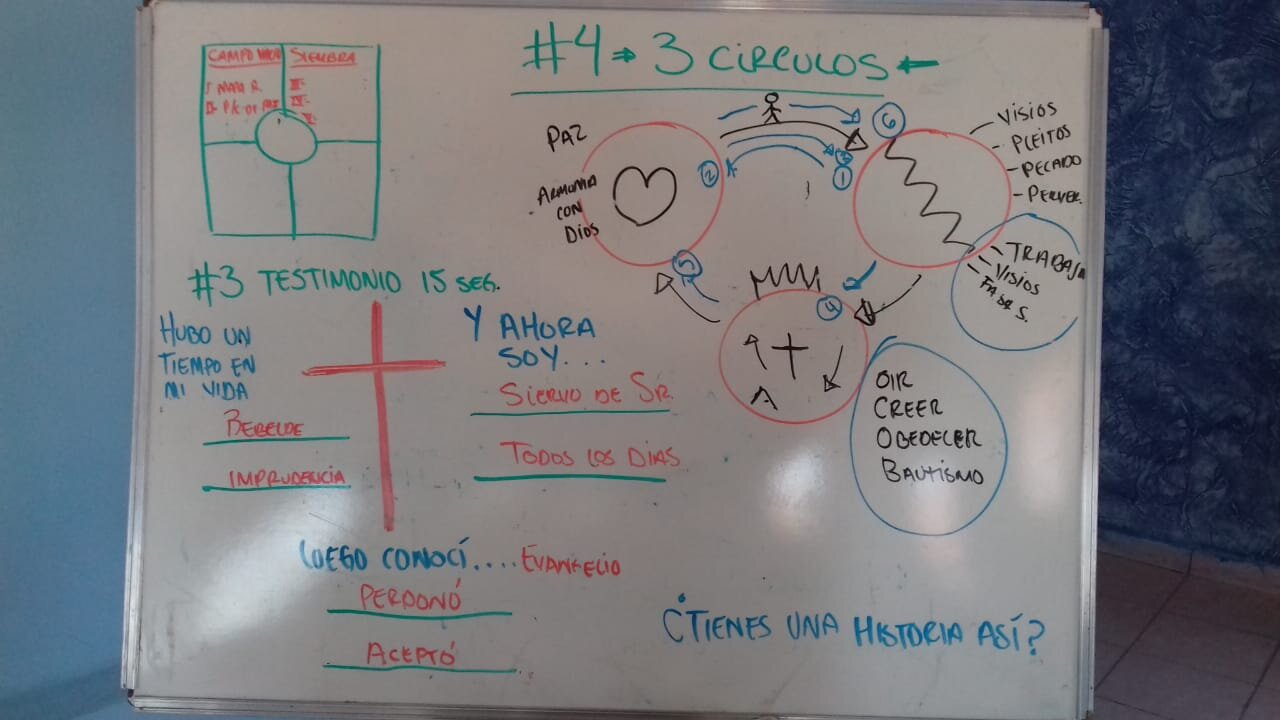 CAMPO
SIEMBRA
I MAPA R.
III-
IV-
V-
#4 → 3 CIRCULOS ←
PAZ
ARMONIA
CON
DIOS
2
3
1
6
- VISIOS
- PLEITOS
- PECADO
- PERVER.
- TRABAJO
- VISIOS
5
4
OIR
CREER
OBEDECER
BAUTISMO
#3 TESTIMONIO 15 SEG.
HUBO UN
TIEMPO EN
MI VIDA
REBELDE
IMPRUDENCIA
Y AHORA
SOY...
SIERVO DE SR.
TODOS LOS DIAS
LUEGO CONOCÍ.... EVANGELIO
PERDONÓ
ACEPTÓ
¿TIENES UNA HISTORIA ASÍ?